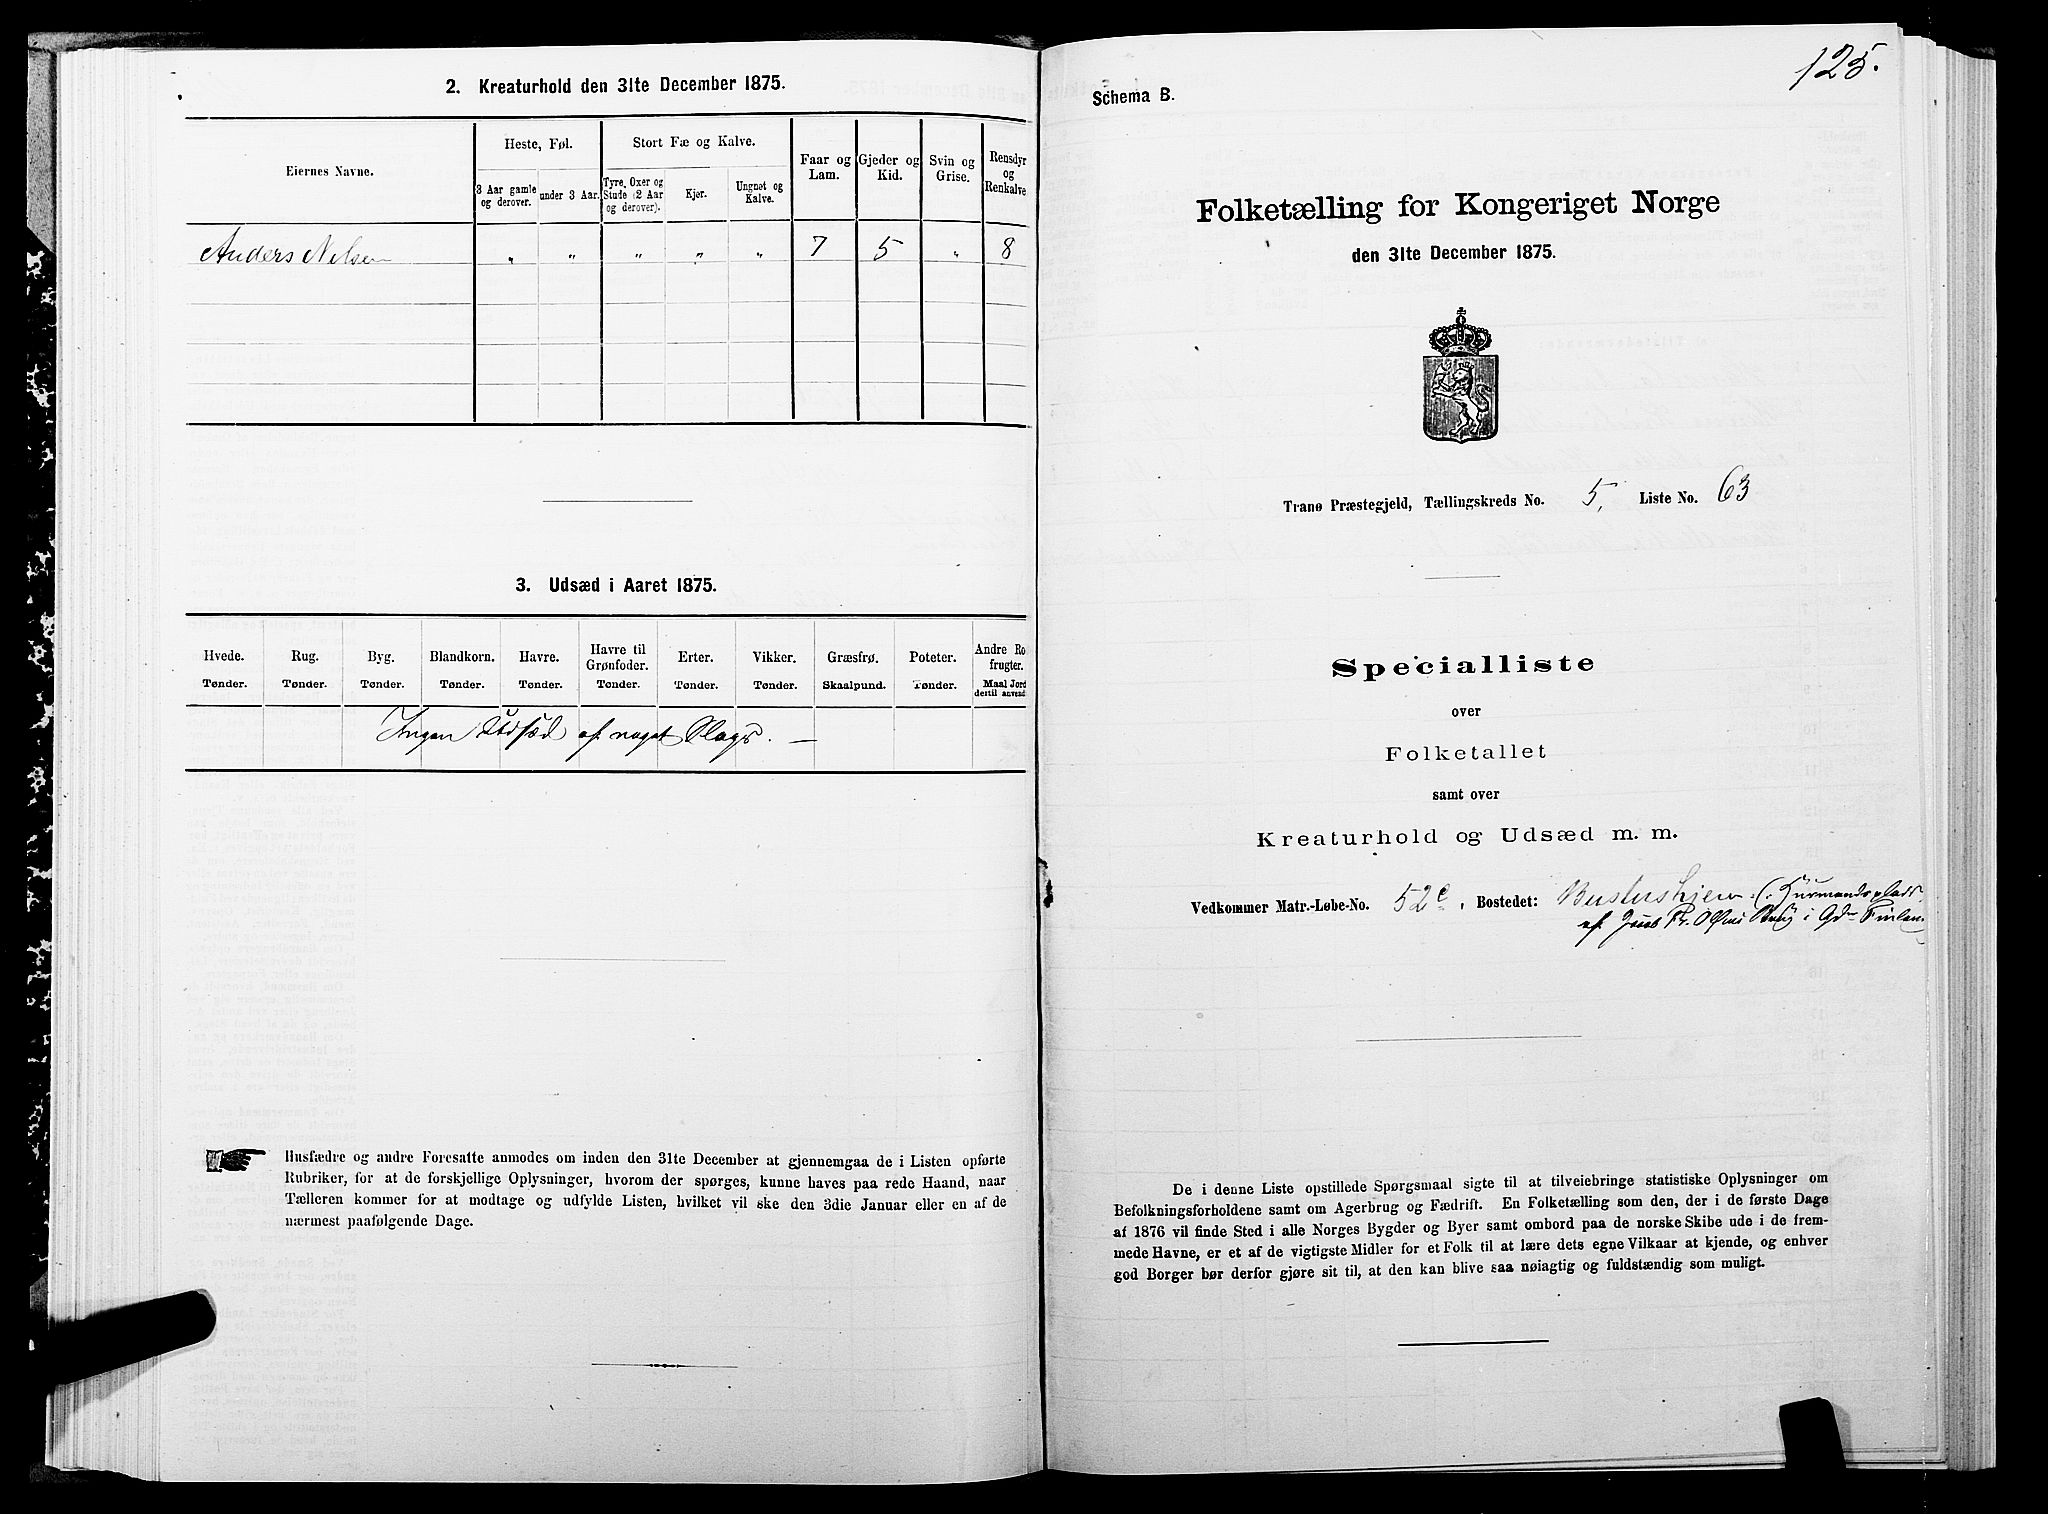 2. Kreaturhold den 31te December 1875.
Eiernes Navne.
Heste, Føl.
Stort Fæ og Kalve.
Faar og Lam.
Gjeder og Kid.
Svin og Grise.
Rensdyr og Renkalve
3 Aar gamle og derover.
under 3 Aar.
Tyre, Oxer og Stude (2 Aar og derover).
Kjør.
Ungnøt og Kalve.
Anders Nilsen " " " " " 7 5 " 8
3. Udsæd i Aaret 1875.
Hvede. Rug. Byg. Blandkorn. Havre. Havre til Grønfoder. Erter. Vikker. Græsfrø. Poteter. Andre Ro frugter.
Tønder. Tønder. Tønder. Tønder. Tønder. Tønder. Tønder. Tønder. Skaalpund. Tønder. Maal Jord dertil anvend
Ingen Udsæd af noget Slags. —
Husfædre og andre Foresatte anmodes om inden den 31te December at gjennemgaa de i Listen opførte
Rubriker, for at de forskjellige Oplysninger, hvorom der spørges, kunne haves paa rede Haand, naar
Tælleren kommer for at modtage og udfylde Listen, hvilket vil ske den 3die Januar eller en af de
nærmest paafølgende Dage.
125.
Schema B.
Folketælling for Kongeriget Norge
den 31te December 1875.
Tranø Præstegjeld, Tællingskreds No. 5, Liste No. 63
Specialliste
over
Folketallet
samt over
Kreaturhold og Udsæd m. m.
Vedkommer Matr.-Løbe-No. 52c, Bostedet: (: Husmandsplads
af Jacob i Finlan
De i denne Liste opstillede Spørgsmaal sigte til at tilveiebringe statistiske Oplysninger om
Befolkningsforholdene samt om Agerbrug og Fædrift. En Folketælling som den, der i de første Dage
af 1876 vil finde Sted i alle Norges Bygder og Byer samt ombord paa de norske Skibe ude i de frem-
mede Havne, er et af de vigtigste Midler for et Folk til at lære dets egne Vilkaar at kjende, og enhver
god Borger bør derfor gjøre sit til, at den kan blive saa nøiagtig og fuldstændig som muligt.